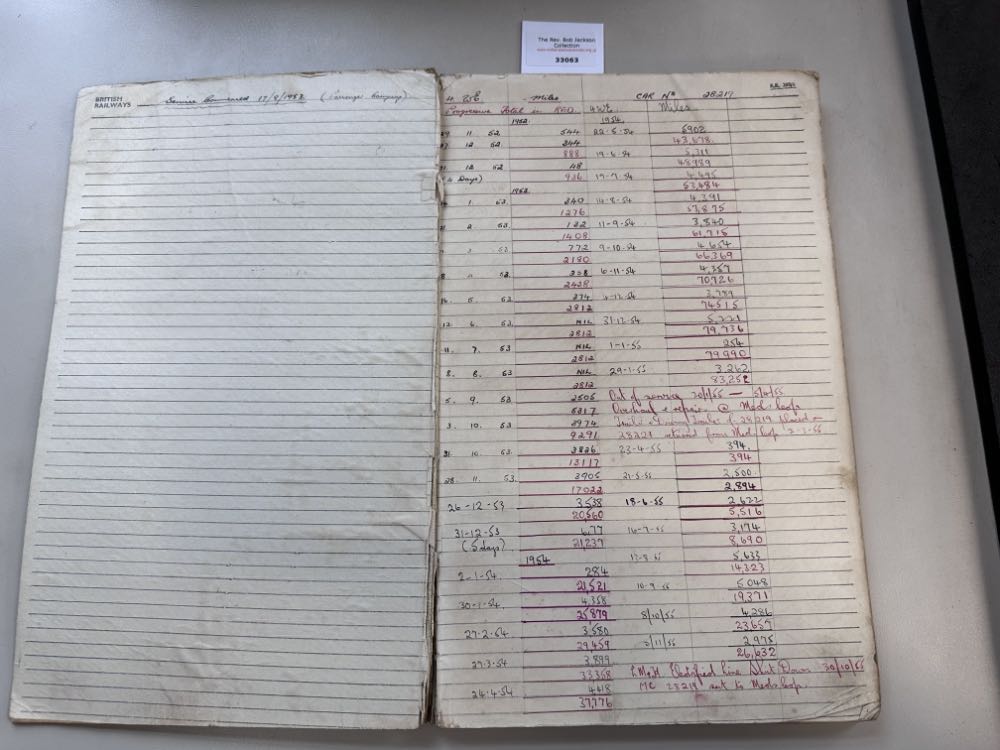 The Rev. Bob Jackson
Collection
33063
BRITISH
RAILWAYS
Service Commenced 17/8/1953 (Passenger Company)
4 W/E Miles CAR No 28219
Progressive Total in RED 4 W/E. Miles
1952. 1954.
29 11 52 544 22-5-54 5902
27 12 52 344 43,678
888 19-6-54 5,311
48989
31 12 52 48 4,495
(4 Days) 936 17-7-54 53,484
1953. 4,391
1. 53. 340 14-8-54 57,875
1276 3,840
2 53. 132 11-9-54 61,715
1408 4,654
53 772 9-10-54 66,369
2180 4,357
53. 258 6-11-54 70,726
2438 3,789
5. 53 374 4-12-54 74515
2812 5,221
6. 53. NIL 31-12-54 79,736
2812 254
7. 53 NIL 1-1-55 79,990
2812 3,262
8. 8. 53 NIL 29-1-55 83,252
2812
5. 9. 53 2505 Out of service 20/1/55 — 5/4/55
5317 Overhaul & repair @ Meols loop
3. 10. 53. 3974 Trailer & Driving Trailer of 28219 placed on
9291 28221 returned from Meols loop 2-3-55
31. 10 53. 3826 23-4-55 394
13117 394
28. 11. 53. 3905 21-5-55 2,500
17022 2,894
26-12-53 3,538 18-6-55 2,622
20,560 5,516
31-12-53 677 16-7-55 3,174
(5 days) 21,237 8,690
1954 13-8-55 5,633
2-1-54. 284 14,323
21,521 10-9-55 5,048
30-1-54 4,358 19,371
25,879 8/10/55 4,286
27-2-54 3,580 23,657
29,459 5/11/55 2,975
27-3-54 3,899 26,632
33,358 L.M&H Electrified Line Shut Down 30/10/55
24-4-54 4418 MC 28219 sent to Meols loop
37,776